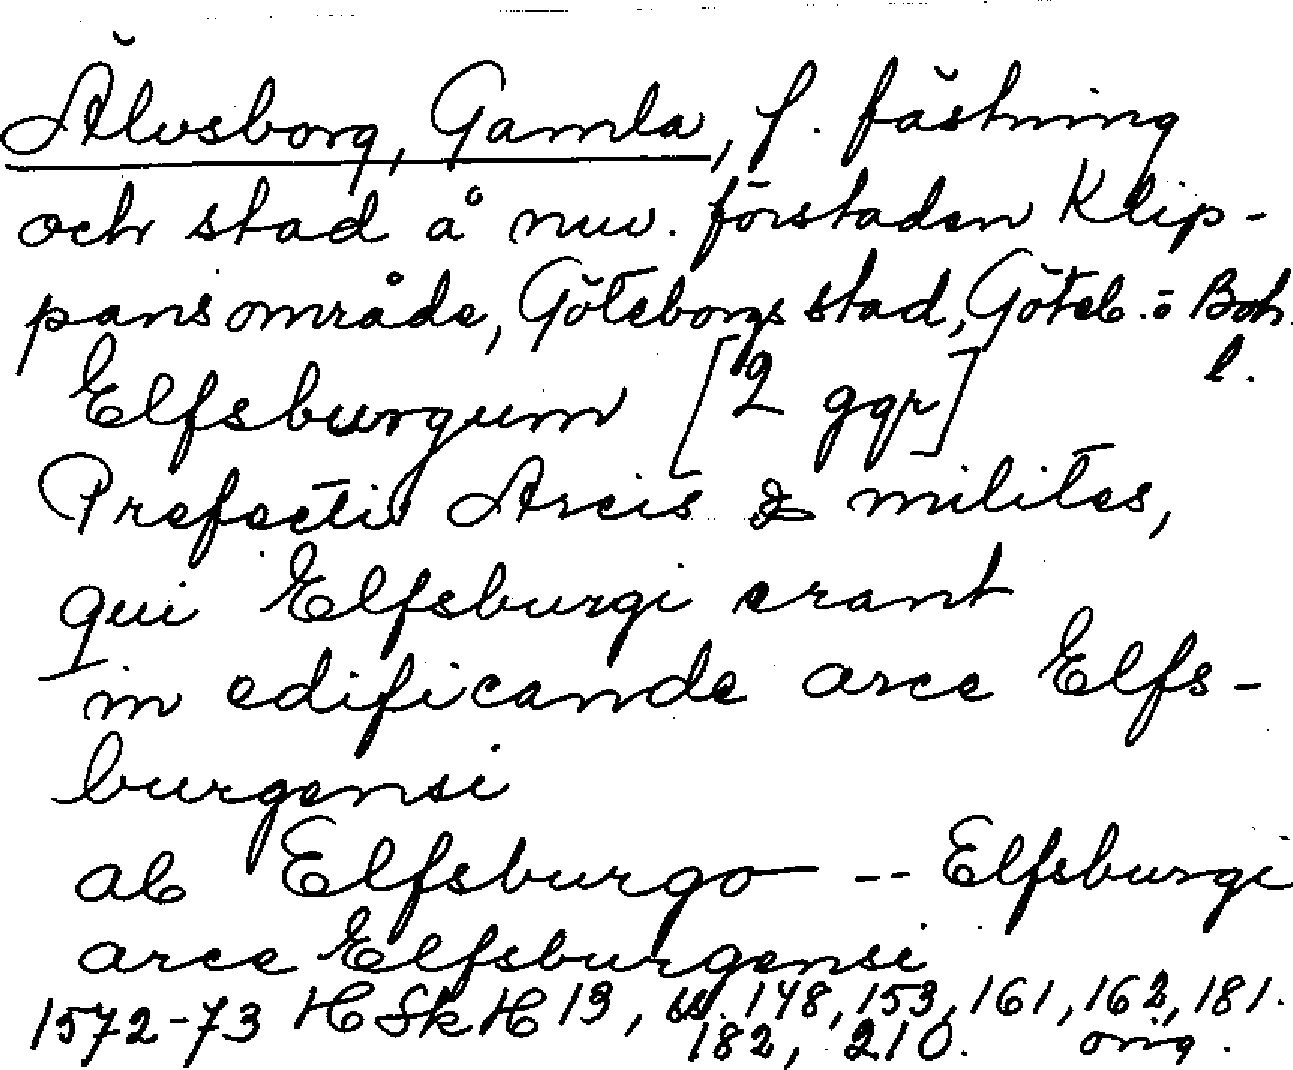 Älvsborg, Gamla, f. fästning
och stad å nuv. förstaden Klip-
pans område, Göteborgs stad, Göteb. o Boh.
l.
Elfsburgum [2 ggr]
Prefecti Arcis & milites,
qui Elfsburgi erant
in edificande arce Elfs-
burgensi
ab Elfsburgo -- Elfsburgi
arce Elfsburgensi
1572-73 HSkH 13, s. 148, 153, 161, 162, 181.
182, 210. orig.